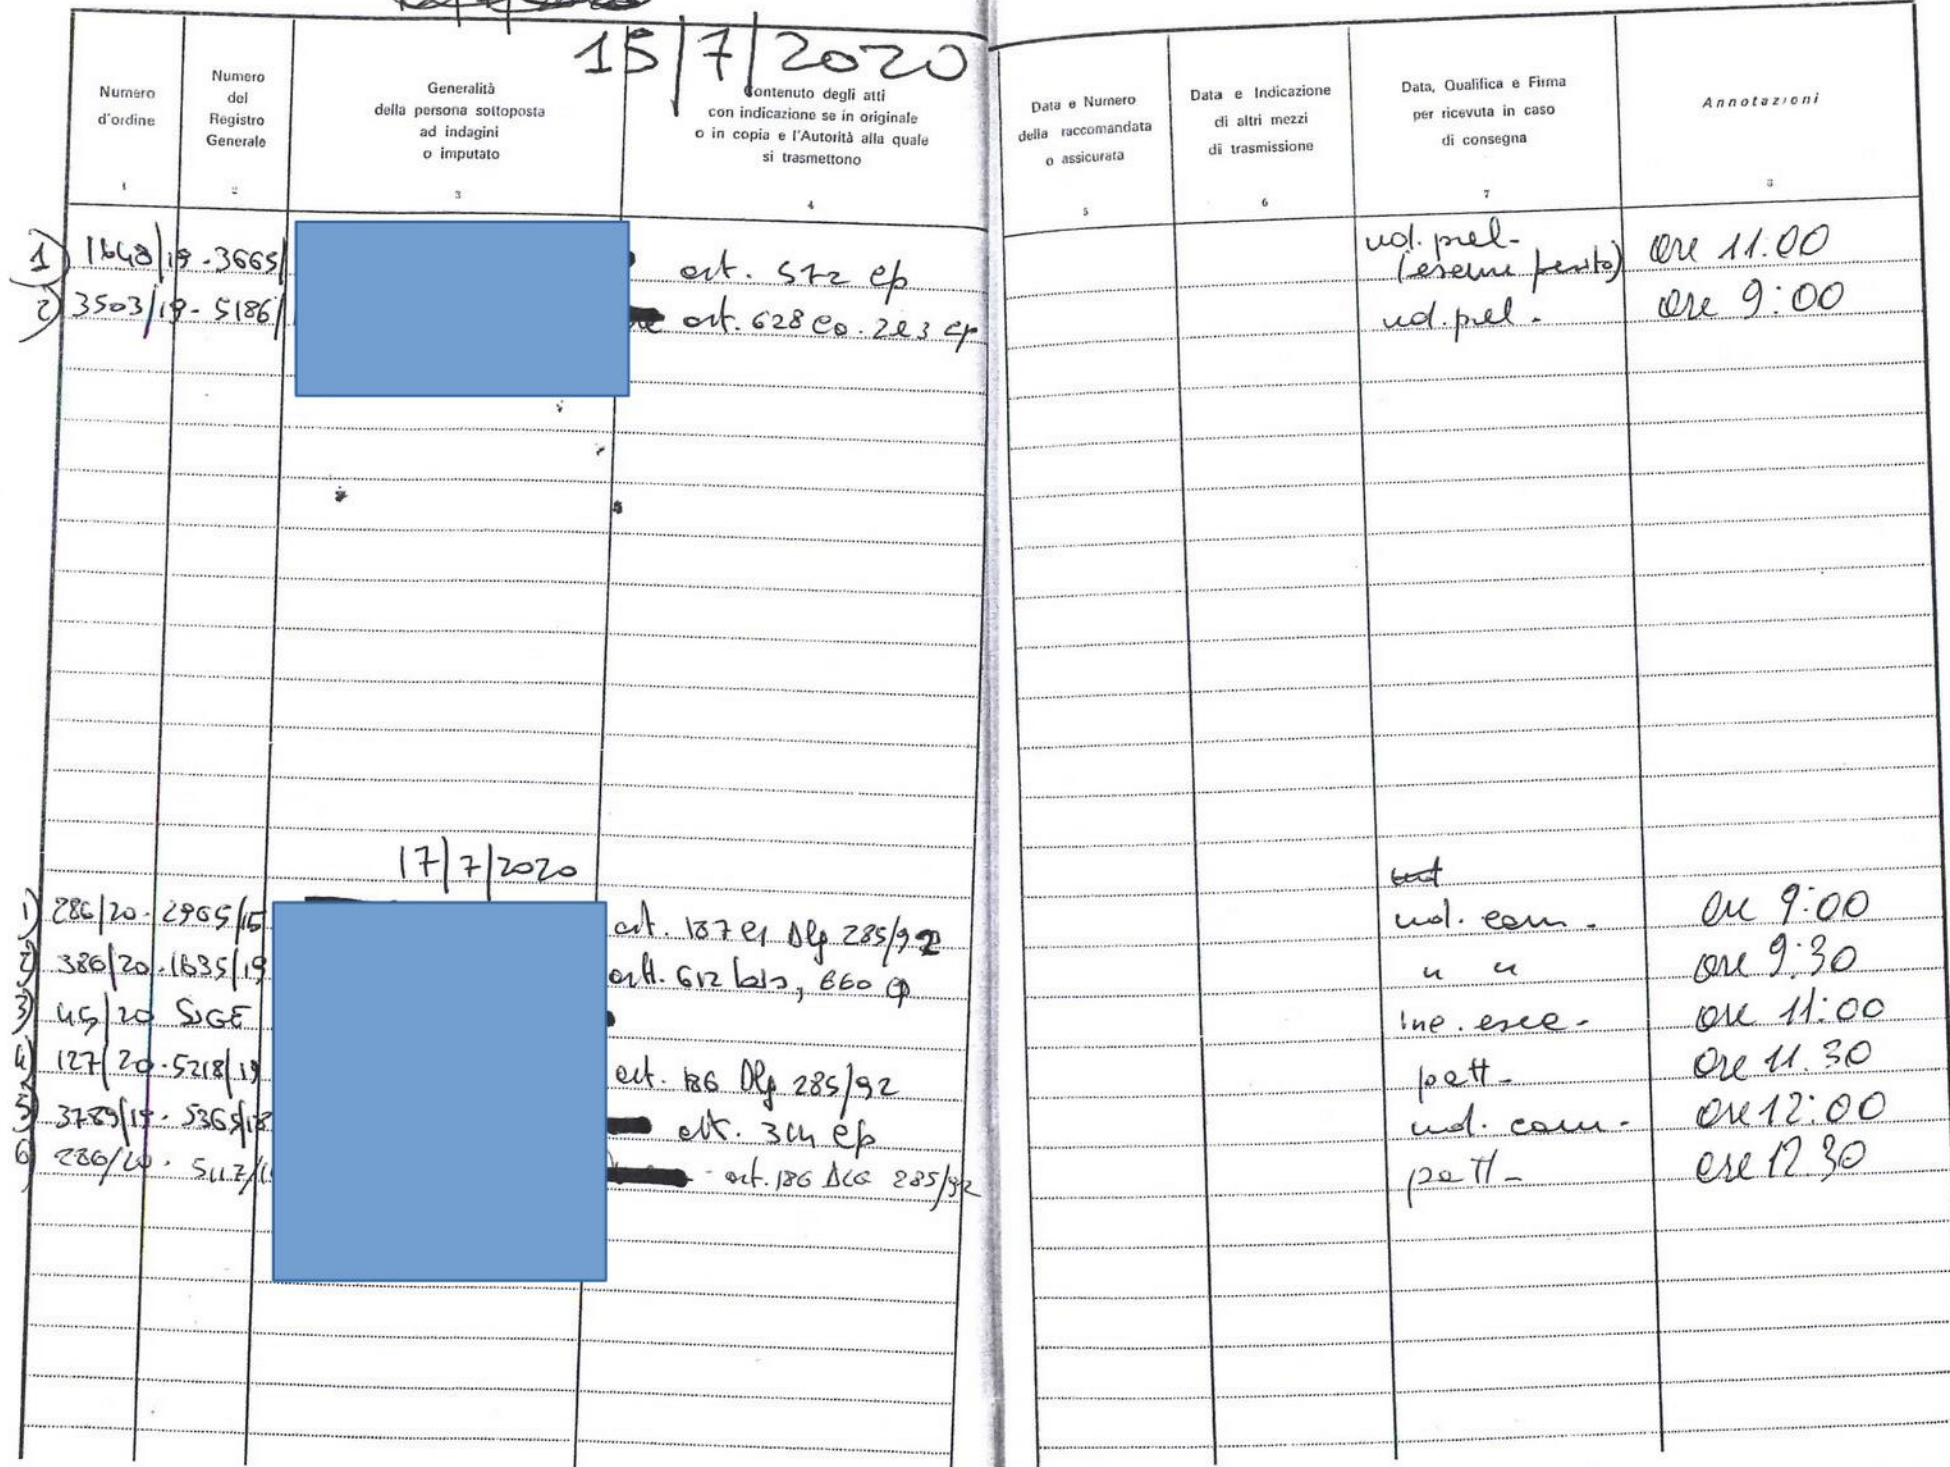 15/7/2020
Numero d'ordine
1
Numero del Registro Generale
2
Generalità della persona sottoposta ad indagini o imputato
3
Contenuto degli atti con indicazione se in originale o in copia e l'Autorità alla quale si trasmettono
4
Data e Numero della raccomandata o assicurata
5
Data e Indicazione di altri mezzi di trasmissione
6
Data, Qualifica e Firma per ricevuta in caso di consegna
7
Annotazioni
8
1) 1648/19-3665/ art. 572 cp ud. prel. (esame perito) ore 11:00
2) 3503/19-5186/ art. 628 co. 2 e 3 cp ud. prel. ore 9:00
17/7/2020
1) 286/20-2965/15 art. 187 c1 Dlg 285/92 ud. cam. ore 9:00
2) 386/20-1635/19 artt. 612 bis, 660 cp " " ore 9:30
3) 45/20 SIGE inc. esec. ore 11:00
4) 127/20-5218/19 art. 186 Dlg 285/92 patt. ore 11.30
5) 3789/19-5365/18 art. 314 cp ud. cam. ore 12:00
6) 286/20-5117/1 art. 186 DLG 285/92 patt. ore 12.30